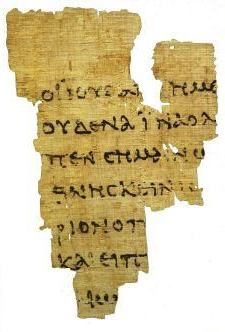 ΟΙ ΙΟΥΔΑΙ ΗΜΕ
ΟΥΔΕΝΑ ΪΝΑ Ο Λ
ΠΕΝ ϹΗΜΑΙΝΩ
ΘΝΗϹΚΕΙΝ Ι
ΡΙΟΝ Ο Π
ΚΑΙ ΕΙΠ